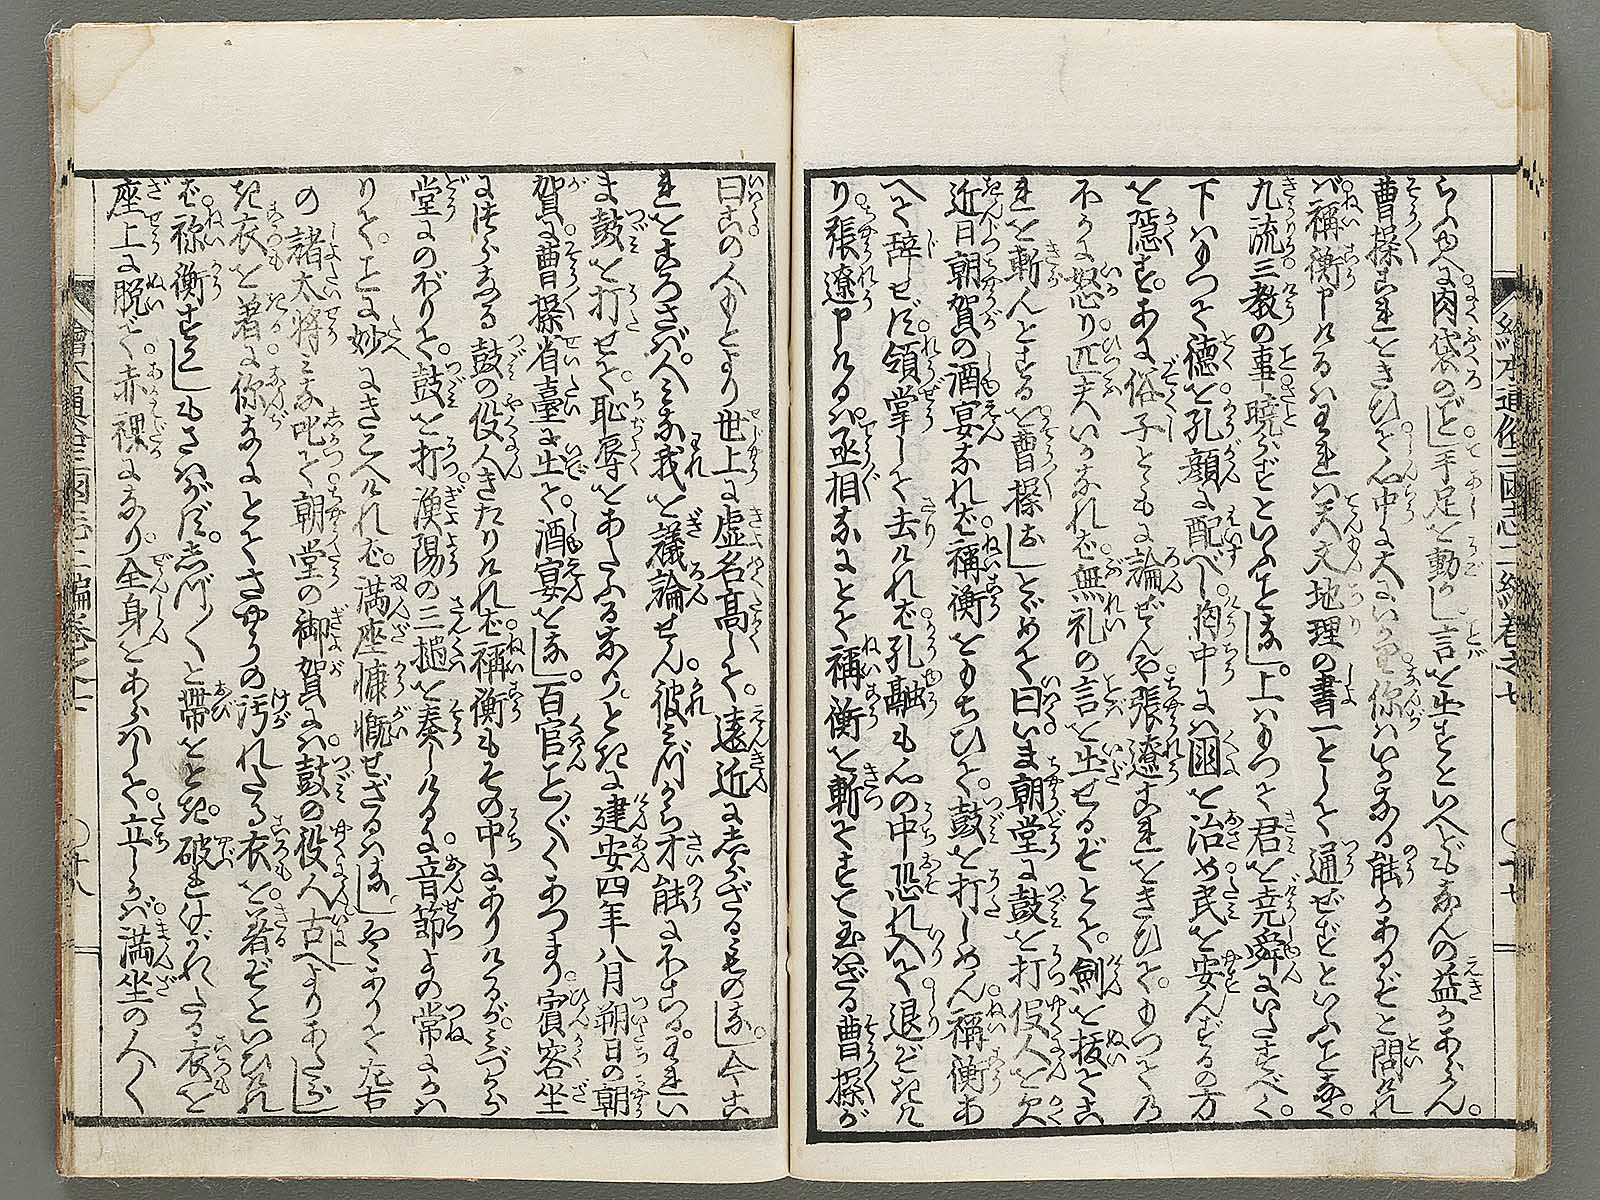 曹操これをきひて心中に大にいかり你はいかなる能かあるぞと問けれ
ば稱衡申けるはわれは天文地理の書一として通ぜずといふことなく
九流三教の事曉らずといふことなし。上はもつて君を堯舜にいたすべく。
下はもつて德を孔顏に配べし。胸中には國を治め民を安んずるの方
を隱す。あに俗子とともに論ぜんや張遼これをきひて。もつての
不かに怒り匹夫いかなれば無礼の言を出せるぞとて。劍を抜てこ
れを斬んとする を曹操おしとどめて曰いま朝堂に鼓を打役人を欠
近日朝賀の酒宴なれば。稱衡をもちひて。鼓を打しめん稱衡あ
へて辞せず。領掌して去ければ孔融も心の中恐れ入て退ぞきけ
り張遼申けるは丞相なにとて稱衡を斬てすて玉はざる曹操が
曰この人もとより世上に虚名高して。遠近にしらざるものなし。今こ
れをころさば。人みな我を議論せん彼みづから才能にほこる。われい
ま鼓を打せて恥辱をあたふるなり。ときに建安四年八月朔日の朝
賀に曹操省臺に出て。酒宴をなし。百官ことごとくあつまり。賓客坐
につらなる鼓の役人きたりければ。稱衡もその中にありけるが。みづから
堂にのぼりて。鼓を打漁陽の三撾を奏しけるに。音節よの常にかは
りて。ことに妙にきこへければ。満座慷慨せざるはなし ややありて左右
の諸大將みな叱て朝堂の御賀には。鼓の役人古へよりあたらし
き衣を着に你なにとてさやうの汚れたる衣を着ぞといひけれ
ば祢衡すこしもさはがず。しづしづと帶をとき。破れけがれたる衣を
座上に脱て。赤裸になり。全身をあらはして。立しかば満坐の人々